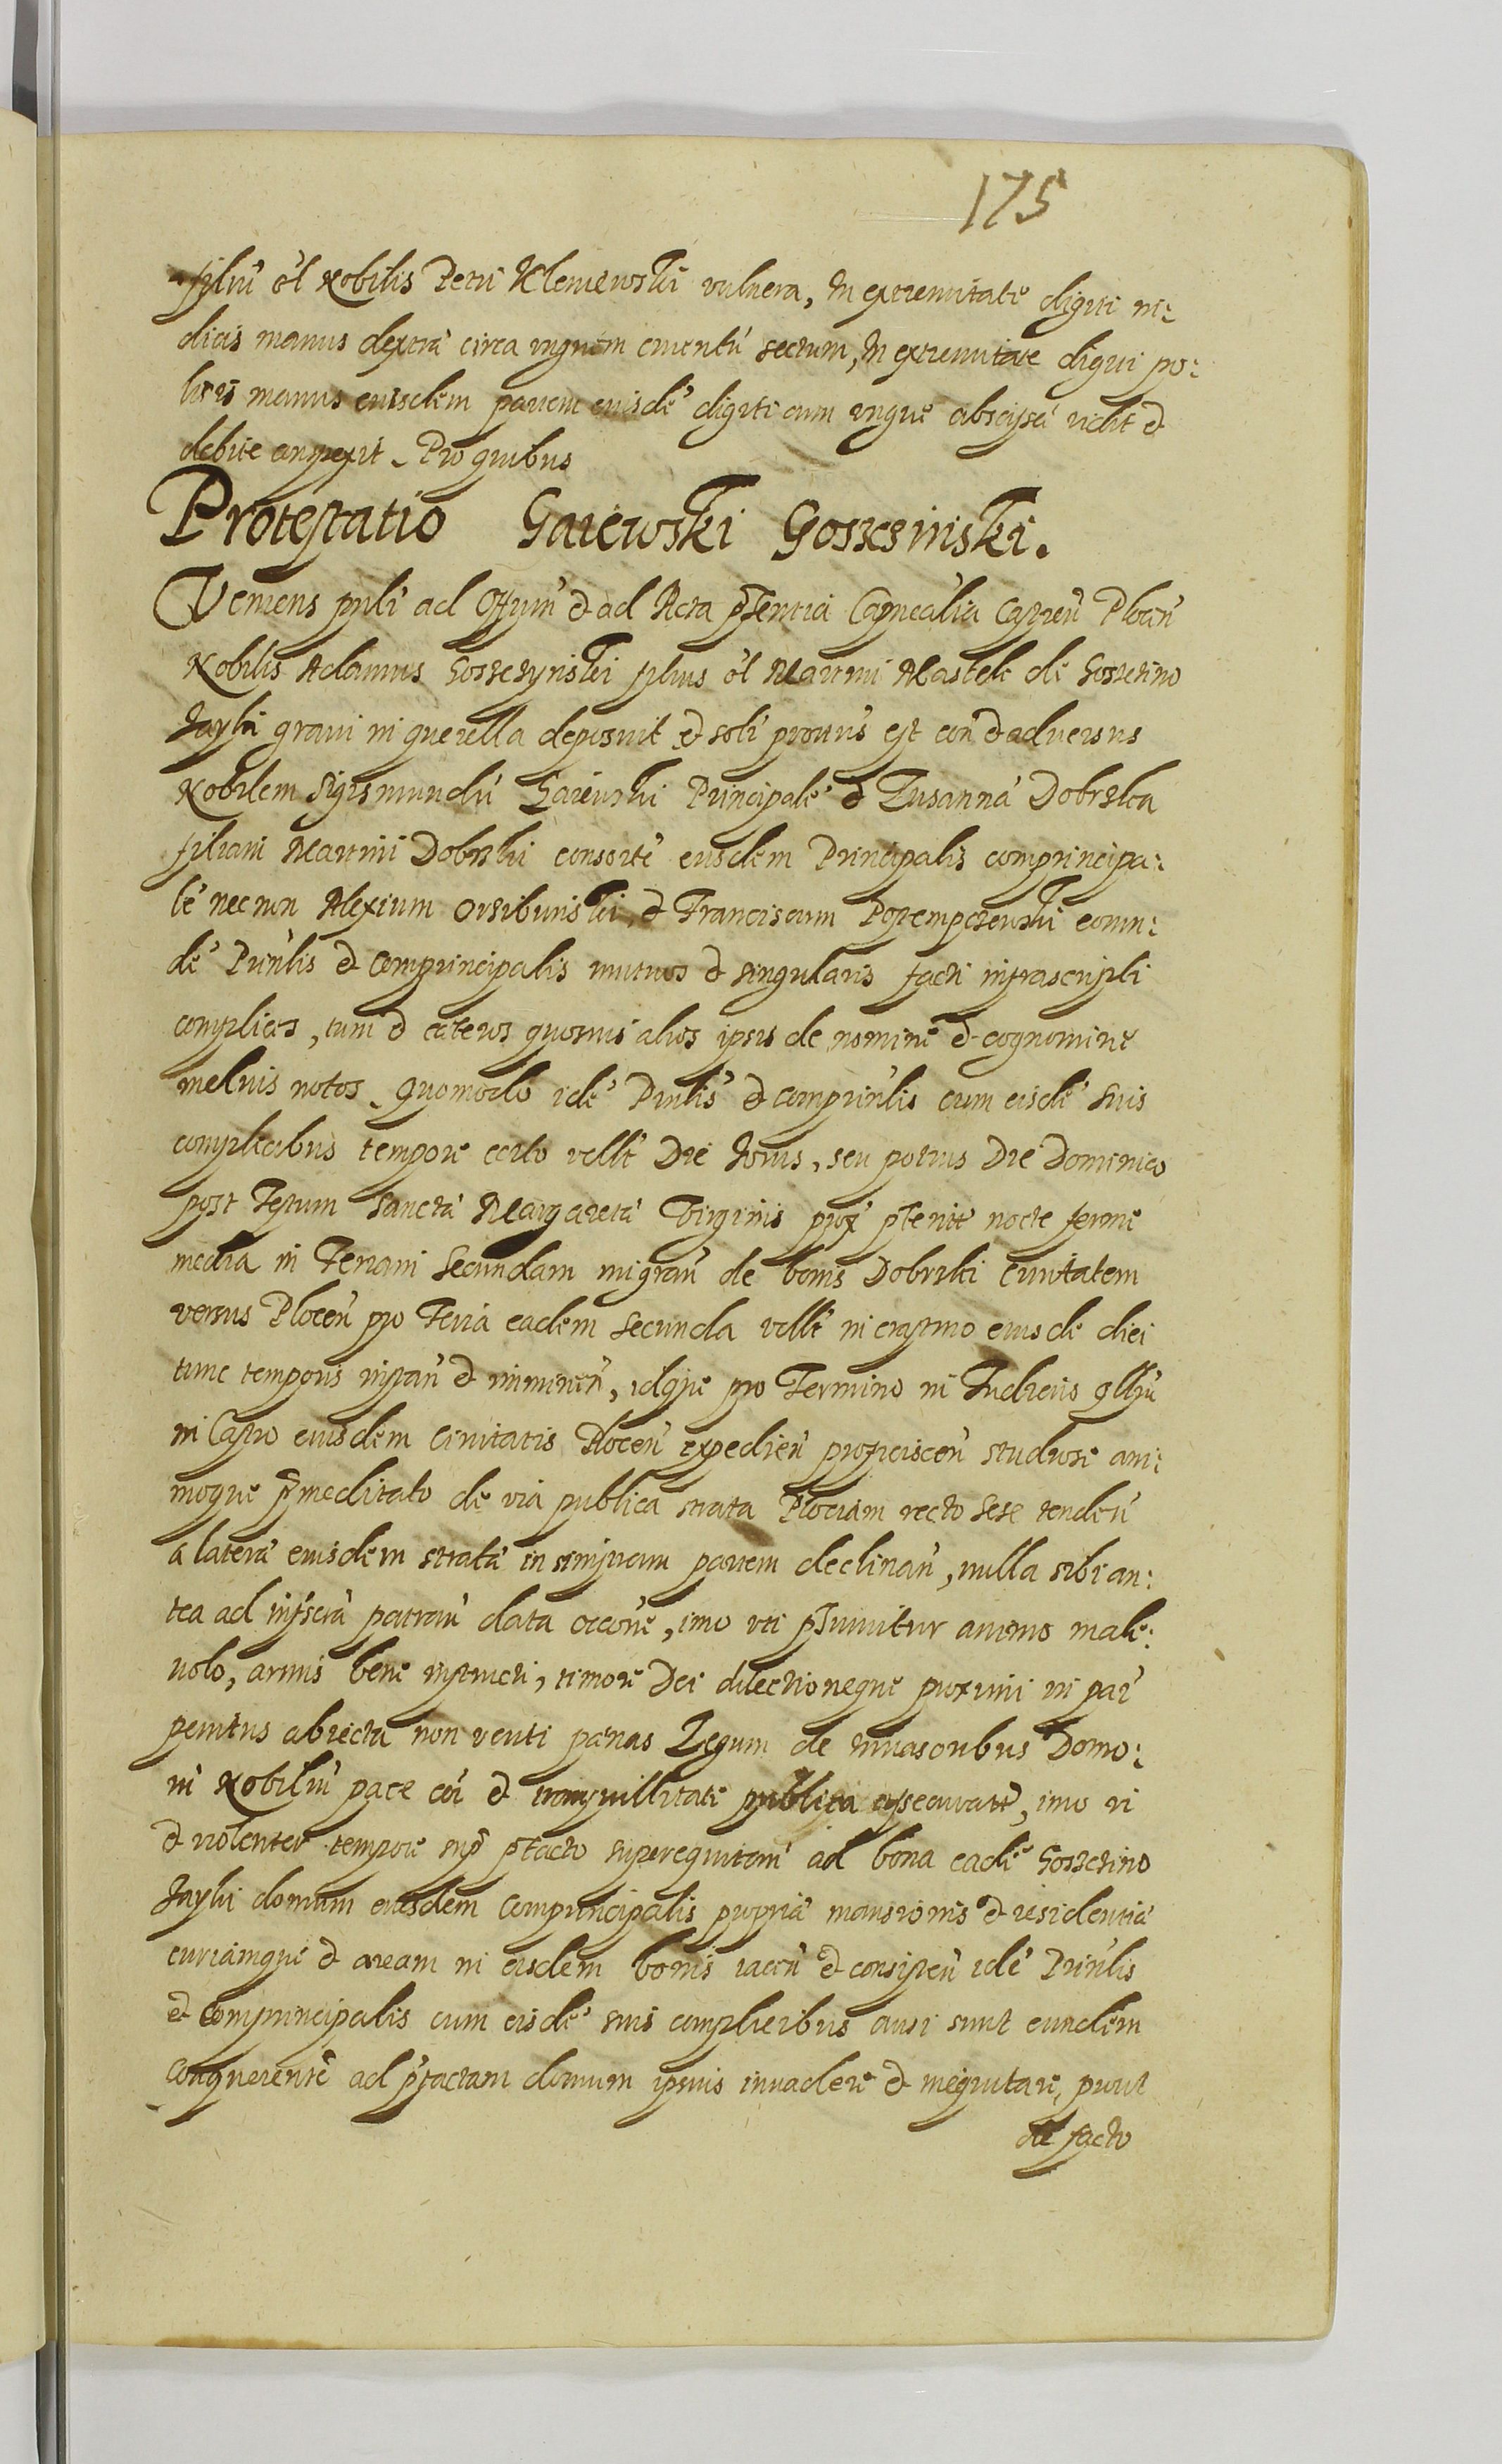 175
filiu ol Nobilis Petri Kleniewski vulnera, in extremitate digiti in:
dicis manus dextrae circa ungnem cruentu sectum, in extremitate digiti po:
llicis manus eiusdem partem eiusde digiti cum ungue abscissa vidit et
debite conspexit. Pro quibus
Protestatio Gaiewski Gosscsinski.
Veniens pnli ad Offium et ad Acta pntia Capnealia Castren Plocen
Nobilis Adamus Gosscsynski filius ol Martini Mastek de Gosscsino
Jaski gravi in querella deposuit et soli prottus est con et adversus
Nobilem Sigismundu Gaiewski Principale et Zusanna Dobrska
filiam Martini Dobrski consorte eiusdem Principalis comprincipa:
le nec non Alexium Orsibinski, et Franciscum Poztempczewski eorun:
de Prinlis et Comprincipalis mutuos et singularis facti infrascripti
complices, tum et cateros quosvis alios ipsis de nomine et cognomine
melius notos. Quomodo ide Prinlis et comprinlis cum eisde suis
complicibus tempore certo vellt Die hovis, seu potius Die Dominico
post Festum Sancta Margareta Virginis prox pterit nocte ferme
media in Feriam Secundam migran de bonis Dobrski Civitatem
versus Plocen pro Feria eadem Secunda vellt in crastino eiusde diei
tunc temporis instan et imminen, idque pro Termino in Judicio
in Castro eiusdem Civitatis Plocen expedien proficiscen studiose ani:
moque pmeditato de via publica strata Plociam recto sese tenden
a latera eiusdem strata in sinistram partem declinan, nulla sibi an:
tea ad infscra patran data occone, imo uti psumitur animo male:
volo, armis bene instructi, timore Dei dilectioneque proximi in par
penitus abiecta non veriti penas Legum de invasoribus Domo:
ru Nobiliu pace coi et tranquillitate publica assecuratt, imo vi
et violenter tempore sup ptacto superequitan ad bona eade Gosscsino
Jaski domum eiusdem Comprincipalis propria mansionis et residentia
curiamque et aream in eisdem bonis iacen et consisten ide Prinlis
et Comprincipalis cum eisde suis complicibus ausi sunt eundem
conquerente ad ptactam domum ipsius invadere et inequitare, prout
de facto